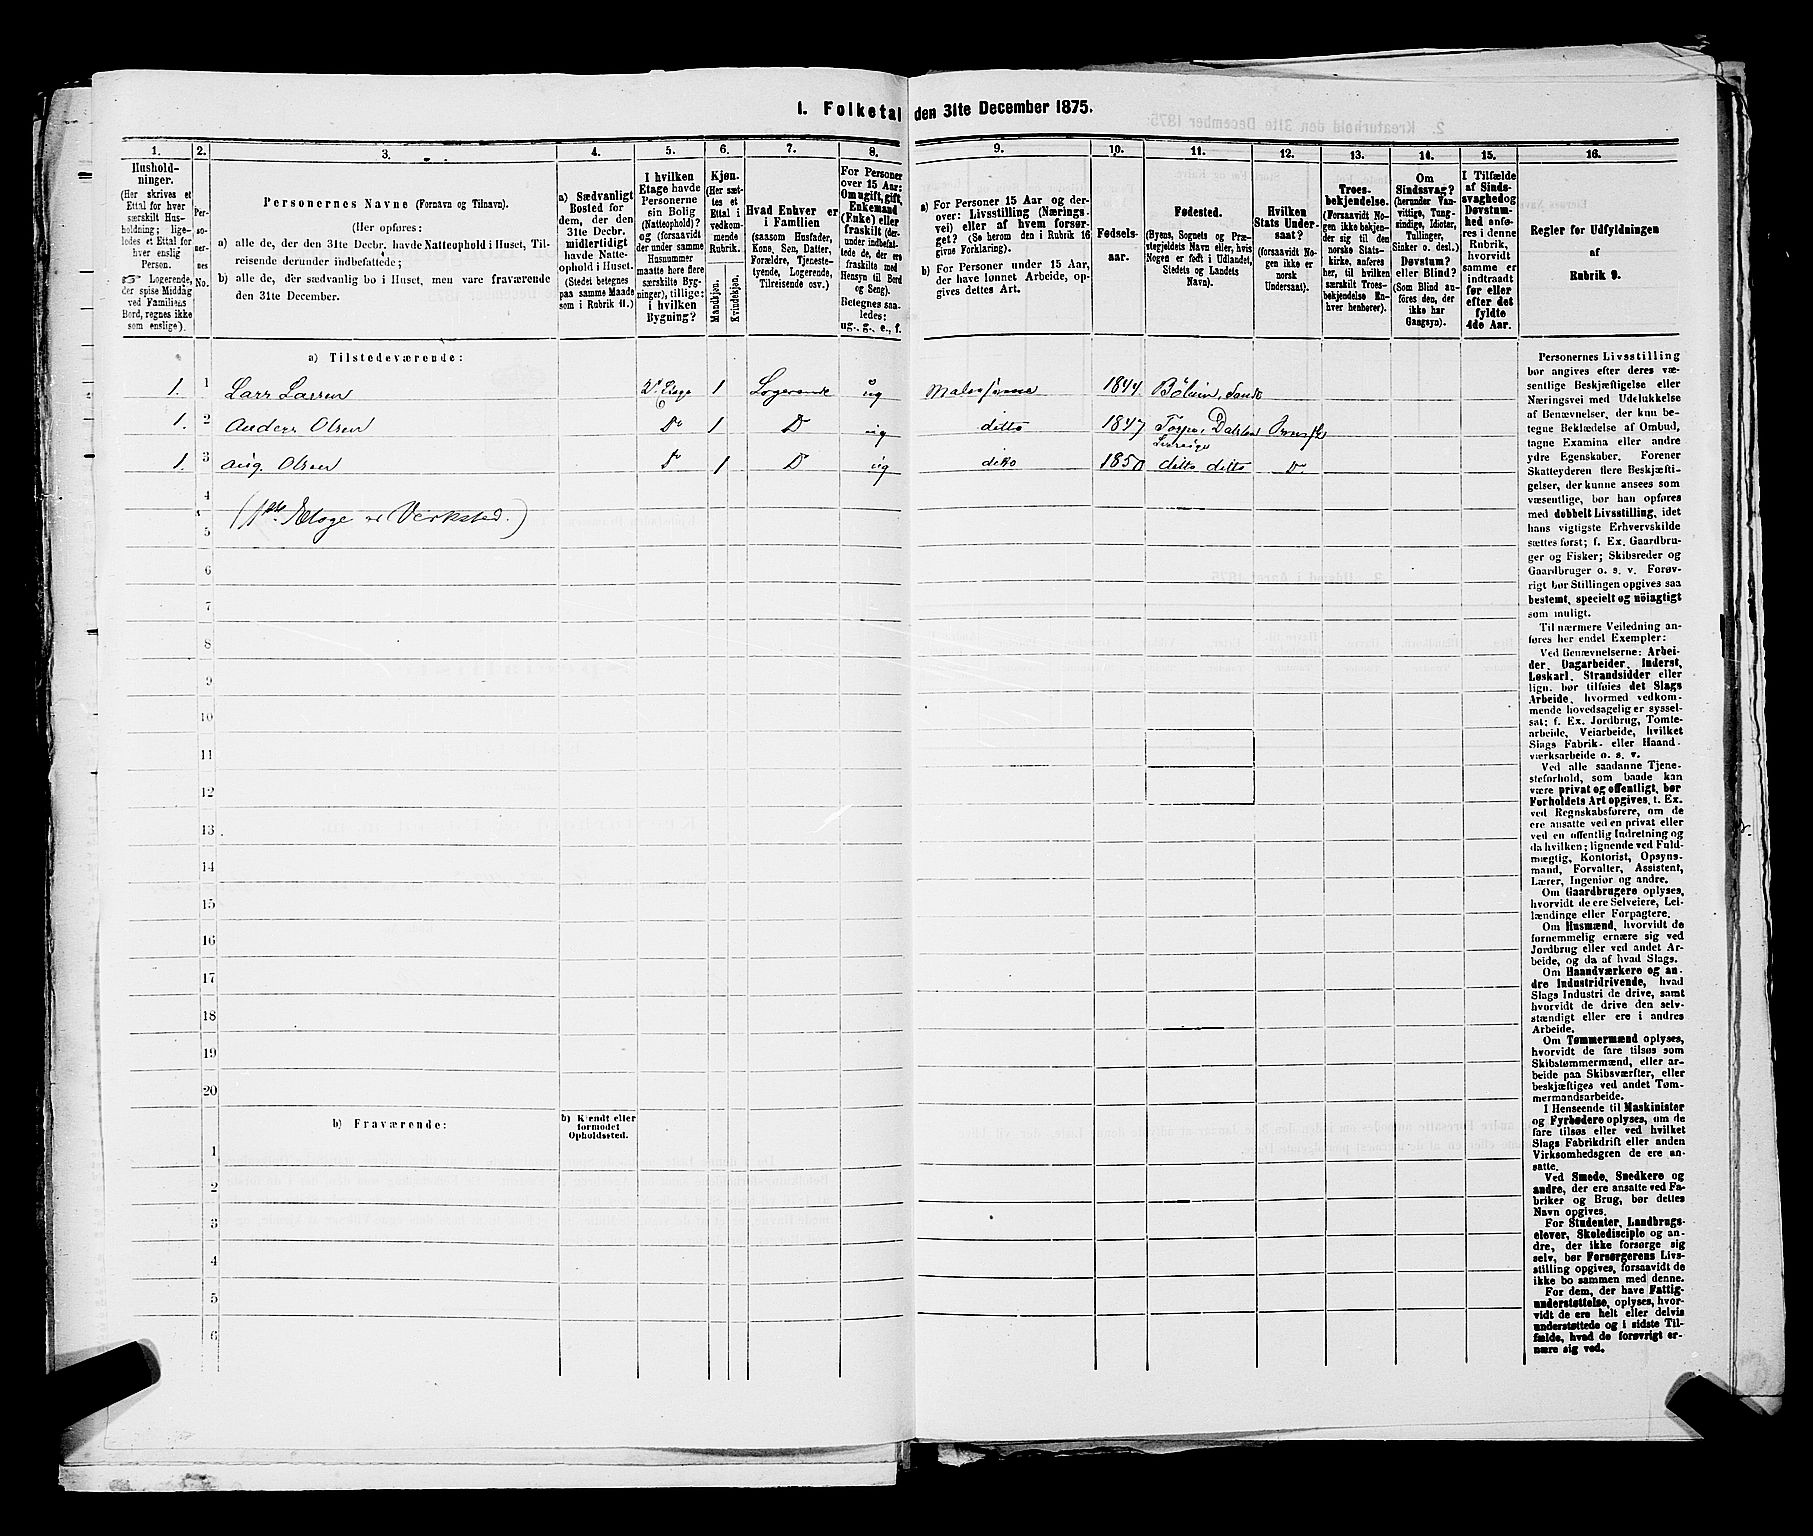 1. Folketal den 31te December 1875.
1.
2.
3.
4.
5.
6.
7.
8.
9.
10.
11.
12.
13.
14.
15.
16.
Husholdninger.
(Her skrives et
Ettal for hver
særskilt Husholdning;
ligeledes et Ettal for
hver enslig
Person.
☞ Logerende,
der spise Middag
ved Familiens
Bord, regnes ikke
som enslige).
Personernes
No.
Personernes Navne (Fornavn og Tilnavn).
(Her opføres:
a) alle de, der den 31te Decbr. havde Natteophold i Huset, Tilreisende derunder indbefattede;
b) alle de, der sædvanlig bo i Huset, men vare fraværende
den 31te December.
a) Sædvanligt
Bosted for
dem, der den
31te Decbr.
midlertidigt
havde Natteophold i Huset.
(Stedet betegnes
paa samme Maade
som i Rubrik 11.)
I hvilken
Etage havde
Personerne
sin Bolig
(Natteophold)?
og (forsaavidt
der under samme
Husnummer
maatte høre flere
særskilte Bygninger), tillige:
i hvilken
Bygning?
Kjøn.
(Her sættes et
Ettal i
vedkommende
Rubrik.
Mandkjøn.
Kvindekjøn.
Hvad Enhver er
i Familien
(saasom Husfader,
Kone, Søn, Datter,
Forældre, Tjenestetyende, Logerende,
Tilreisende osv.)
For Personer
over 15 Aar:
Om ugift, gift,
Enkemand
(Enke) eller
fraskilt (derunder indbefattede de, der ere
fraskilte med
Hensyn til Bord
og Seng).
Betegnes saaledes:
ug., g., e., f.
a) For Personer 15 Aar og derover: Livsstilling (Næringsvei) eller af hvem forsørget? (Se herom den i Rubrik 16
givne Forklaring).
b) For Personer under 15 Aar,
der have lønnet Arbeide, opgives dettes Art.
Fødselsaar.
Fødested.
(Byens, Sognets og Præstegjeldets Navn eller, hvis
Nogen er født i Udlandet,
Stedets og Landets
Navn).
Hvilken
Stats Undersaat?
(forsaavidt Nogen ikke er
norsk
Undersaat).
Troesbekjendelse.
(Forsaavidt Nogen ikke bekjender sig til den
norske Statskirke, anføres
her, til hvilken
særskilt Troesbekjendelse Enhver henhører).
Om
Sindssvag?
(herunder Vanvittige, Tungsindige, Idioter,
Tullinger,
Sinker o. desl.)
Døvstum?
eller Blind?
(Som Blind anføres den, der
ikke har
Gangsyn).
I Tilfælde
af Sindssvaghed og
Døvstumhed anføres i denne
Rubrik,
hvorvidt
samme er
indtraadt
før eller
efter det
fyldte
4de Aar.
Regler for Udfyldningen
af
Rubrik 9.
a) Tilstedeværende:
1. 1 Lars Larsen 2. Etage 1 Logerende ug Malersvend 1844
1. 2 Anders Olsen Do 1 D ug ditto 1847
1. 3 Aug. Olsen Do 1 D ug ditto 1850 ditto ditto D.
4
(1ste Etage er Verksted.)
5
6
7
8
9
10
11
12
13
14
15
16
17
18
19
20
b) Fraværende:
b) Kjendt eller
formodet
Opholdssted.
1
2
3
4
5
6
Personernes Livsstilling
bør angives efter deres væsentlige Beskjæftigelse eller
Næringsvei med Udelukkelse
af Benævnelser, der kun betegne Beklædelse af Ombud,
tagne Examina eller andre
ydre Egenskaber. Forener
Skatteyderen flere Beskjæftigelser, der kunne ansees som
væsentlige, bør han opføres
med dobbelt Livsstilling, idet
hans vigtigste Erhvervskilde
sættes først; f. Ex. Gaardbruger og Fisker; Skibsreder og
Gaardbruger o. s. v. Forøvrigt bør Stillingen opgives saa
bestemt, specielt og nöiagtigt
som muligt.
Til nærmere Veiledning anføres her endel Exempler:
Ved Benævnelserne: Arbeider, Dagarbeider, Inderst,
Løskarl, Strandsidder eller
lign. bør tilføies det Slags
Arbeide, hvormed vedkommende hovedsagelig er sysselsat; f. Ex. Jordbrug, Tomtearbeide, Veiarbeide, hvilket
Slags Fabrik- eller Haandværksarbeide o. s. v.
Ved alle saadanne Tjenesteforhold, som baade kan
være privat og offentligt, bør
Forholdets Art opgives, t. Ex.
ved Regnskabsførere, om de
ere ansatte ved en privat eller
ved en offentlig Indretning og
da hvilken; lignende ved Fuldmægtig, Kontorist, Opsynsmand, Forvalter, Assistent,
Lærer, Ingeniør og andre.
Om Gaardbrugere oplyses,
hvorvidt de ere Selveiere, Leilændinge eller Forpagtere.
Om Husmænd, hvorvidt de
fornemmelig ernære sig ved
Jordbrug eller ved andet Arbeide, og da af hvad Slags.
Om Haandværkere og andre Industridrivende, hvad
Slags Industri de drive, samt
hvorvidt de drive den selvstændigt eller ere i andres
Arbeide.
Om Tømmermænd oplyses,
hvorvidt de fare tilsøs som
Skibstømmermænd, eller arbeide paa Skibsværfter, eller
beskjæftiges ved andet Tømmermandsarbeide.
I Henseende til Maskinister
og Fyrbødere oplyses, om de
fare tilsøs eller ved hvilket
Slags Fabrikdrift eller anden
Virksomhedsgren de ere ansatte.
Ved Smede, Snedkere og
andre, der ere ansatte ved Fabriker og Brug, bør dettes
Navn opgives.
For Studenter, Landbrugselever, Skoledisciple og andre, der ikke forsørge sig
selv, bør Forsørgerens Livsstilling opgives, forsaavidt de
ikke bo sammen med denne.
For dem, der have Fattigunderstøttelse, oplyses, hvorvidt de ere helt eller delvis
understøttede og i sidste Tilfælde, hvad de forøvrigt ernære sig ved.